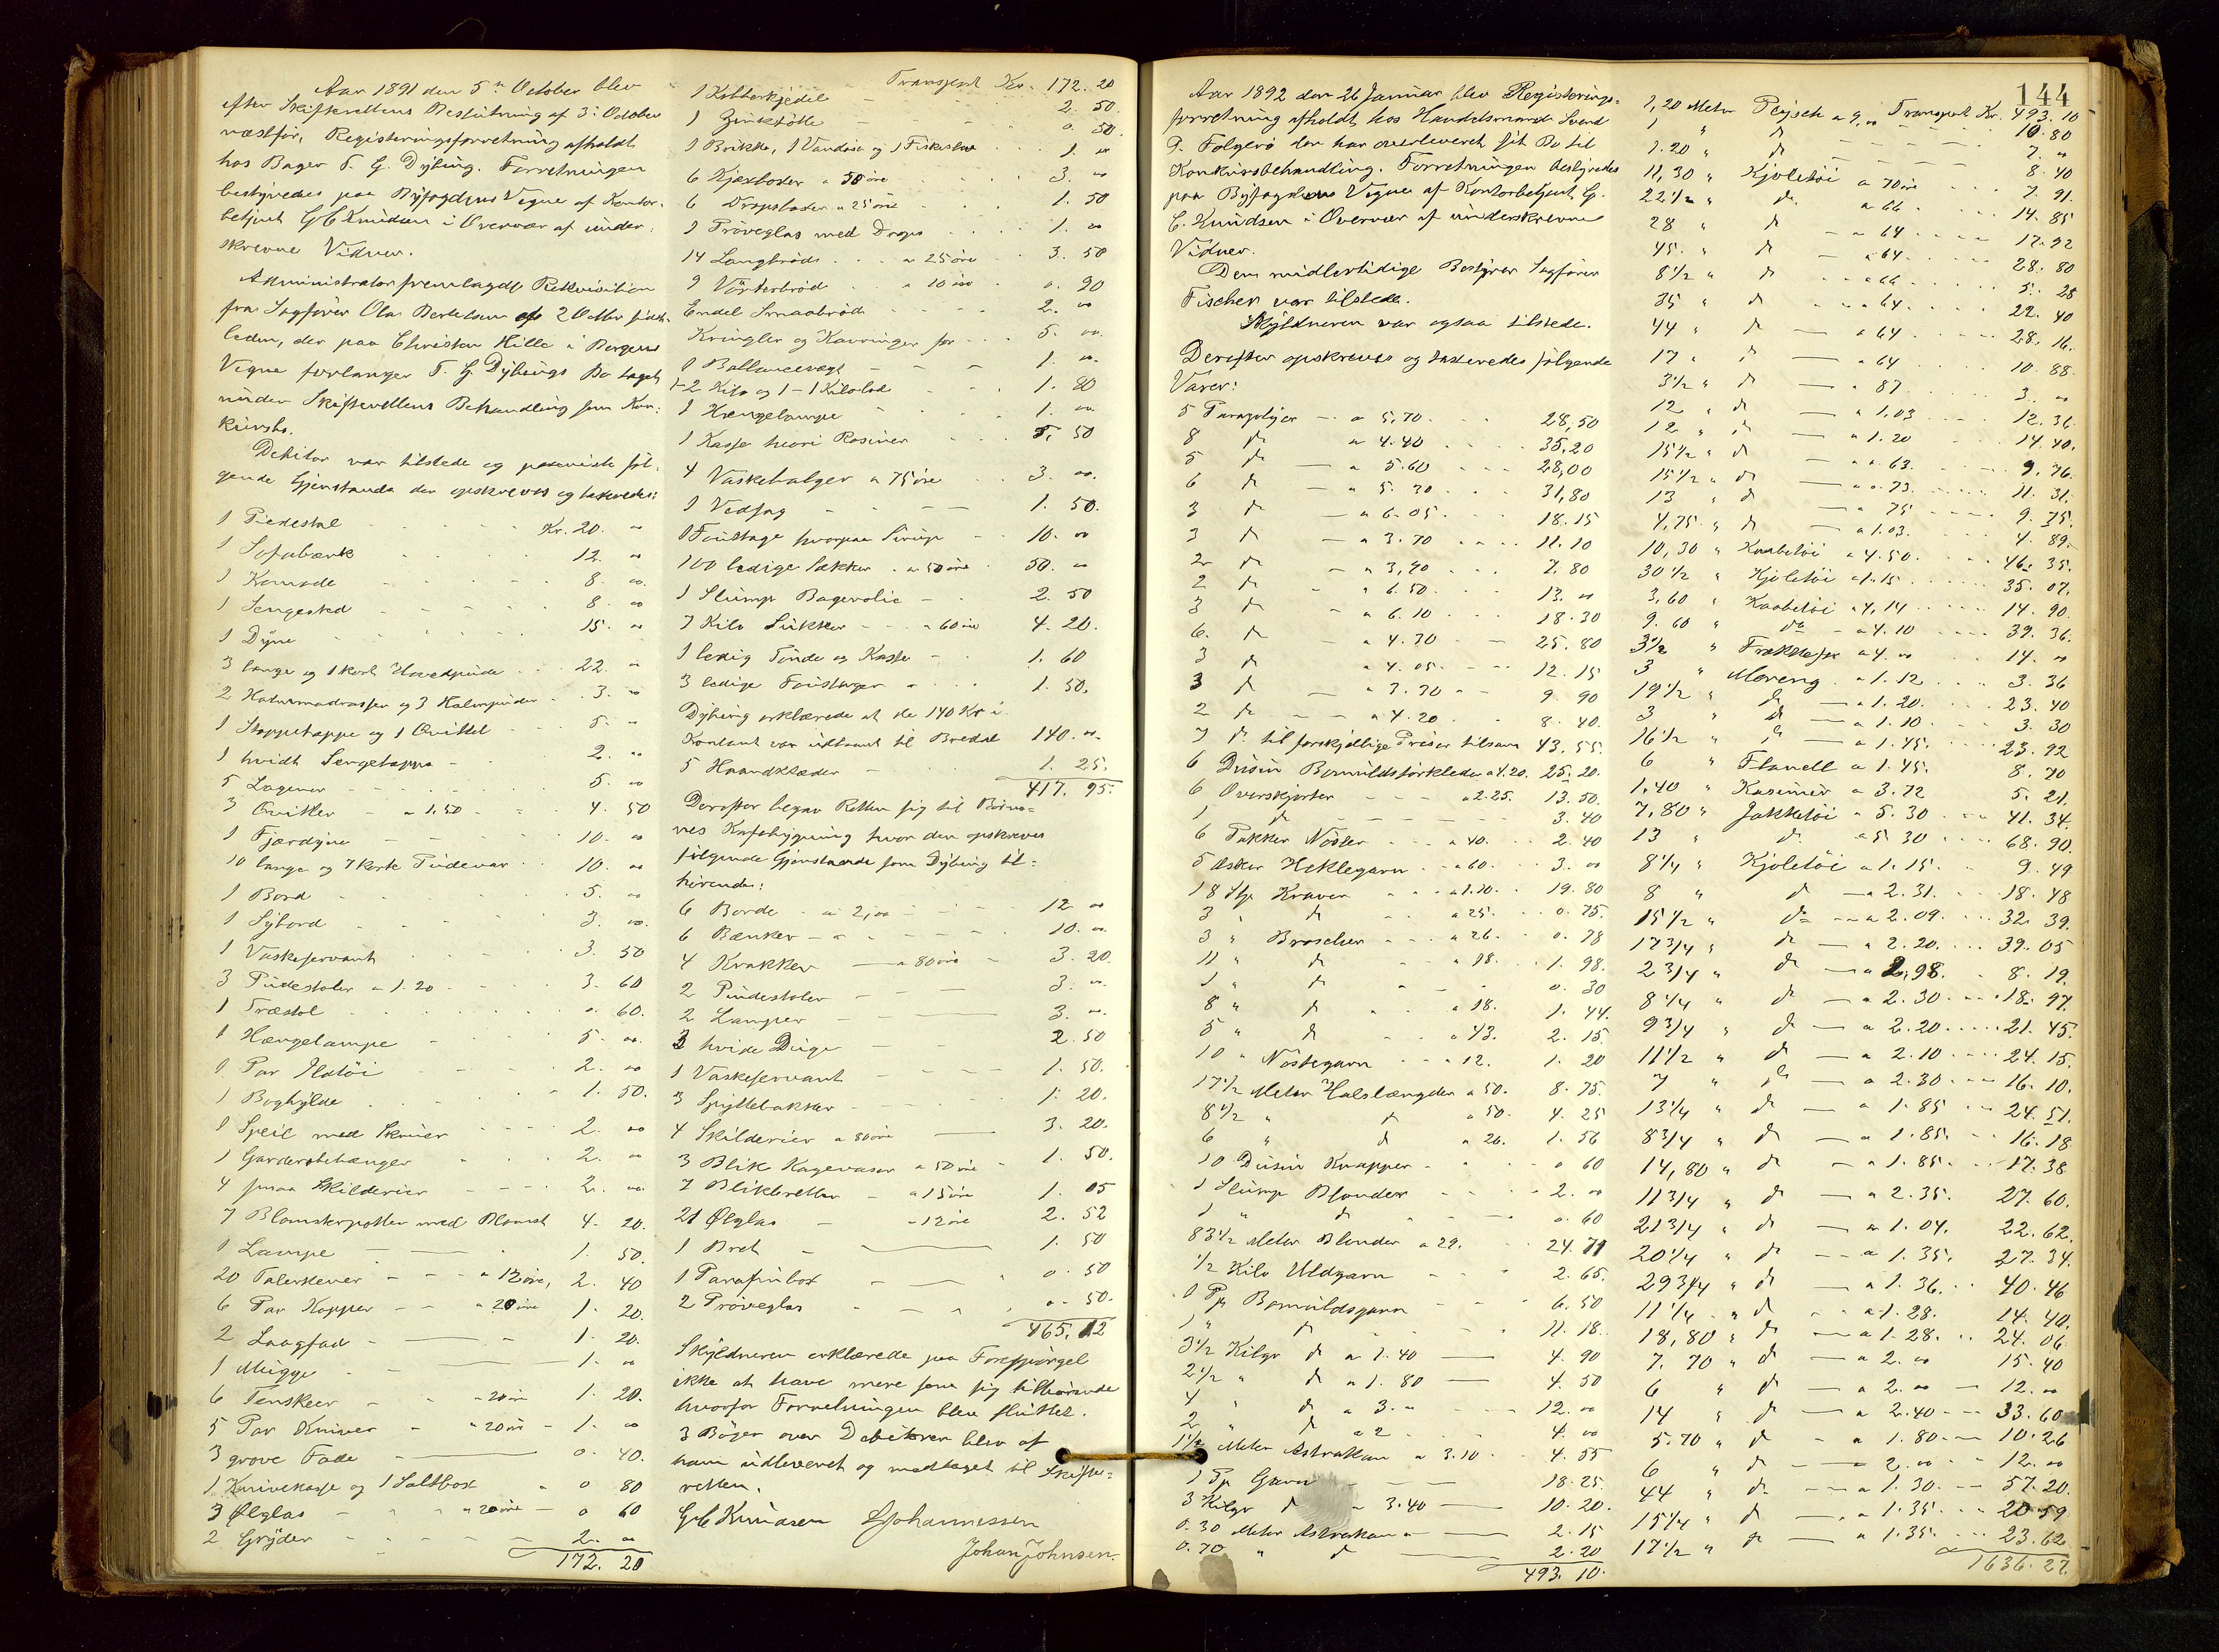 Aar 1891 den 5te October blev
efter Skifterettens Beslutning af 3: October
næstfør, Registeringsforretning afholdt
hos Bager T. G. Dybing. Forretningen
bestyredes paa Byfogdens Vegne af Kontor-
betjent G C Knudsen i Overvær af under-
skrevne Vidner.
Administrator fremlagde Rekvisition
fra Sagfører Ola Bertelsen af 2 Octbr sidst-
leden, der paa Christen Hille i Bergens
Vegne forlanger T. G. Dybings Bo taget
under Skifterettens Behandling som Kon-
kursbo.
Debitor var tilstede og paaviste føl-
gende Gjenstande der opskreves og taxeredes:
1 Piedestal Kr. 20. "
1 Sofabænk 12. "
1 Komode 8. "
1 Sengested 8. "
1 Dyne 15. "
3 lange og 1 kort Hovedpude 22. "
2 Halmmadrasser og 3 Halmpuder 3. "
1 Stoppetæppe og 1 Qvittel 5. "
1 hvidt Sengetæppe 2. "
5 Lagener 5. "
3 Qvitler a 1.50 4. 50
1 Fjærdyne 10. "
10 lange og 7 korte Pudevar 10. "
1 Bord 5. "
1 Sybord 3. "
1 Vaskeservant 3. 50
3 Pindestoler a 1.20 3. 60
1 Træstol 0. 60.
1 Hængelampe 5. "
1 Par Ildtøi 2. "
1 Boghylde 1. 50.
1 Speil med Skruer 2. "
1 Garderobehænger 2. "
4 smaa Skilderier 2. "
7 Blomsterpotter med Blomst 4. 20.
1 Lampe 1. 50.
20 Talerkener a 12 øre, 2. 40
6 Par Kopper a 20 øre 1. 20.
2 Laagfad 1. 20.
1 Mugge 1. "
6 Tenskeer a 20 øre 1. 20.
5 Par Kniver a 20 øre 1. "
3 grove Fade 0. 40.
1 Knivekasse og 1 Saltbox 0 80
3 Ølglas a 20 øre 0 60
2 Gryder 2. "
172. 20
Transport Kr. 172. 20
1 Kobberkjedel 2. 50.
1 Zinkbøtte 0. 50.
1 Brikke, 1 Vandøse og 1 1. "
6 Kjæxboxer a 50 øre 3. "
6 Dropsboxer a 25 øre 1. 50
1 Prøveglas med Drops 1. "
14 Langbrød a 25 øre 3. 50
9 Vørterbrød a 10 øre 0. 90
Endel Smaabrød 2. "
Kringler og Kavringer for 5. "
1 Ballancevægt 1. "
1-2 Kilo og 1-1 Kilolod 1. 80
1 Hængelampe 1. "
1 Kasse hvori Rosiner 5. 50
4 Vaskebalger a 75 øre 3. "
1 Vedsag 1. 50.
1 Foustage hvorpaa Sirup 10. "
100 ledige Sække a 50 øre 50. "
1 Slump Bagerolie 2. 50
7 Kilo Sukker a 60 øre 4. 20.
1 ledig Tønde og Kasse 1. 60
3 ledige Foustager 1. 50.
Dybing erklærede at de 140 Kr i
Kontant var udtaant til Bredal 140. "
5 Haandklæder 1. 25.
417. 95.
Derefter begav Retten sig til
Kafebygning hvor den opskreves
følgende Gjenstande som Dybing til-
hørende:
6 Borde a 2,00 12 "
6 Bænker 10. "
4 Krakker a 80 øre 3. 20.
2 Pindestoler 3. "
2 Lamper 3. "
3 hvide Duge 2. 50
1 Vaskeservant 1. 50.
3 Spyttebakker 1. 20.
4 Skilderier a 80 øre 3. 20.
3 Blik Kagevaser a 50 øre 1. 50.
7 Blikbretter a 15 øre 1. 05
21 Ølglas a 12 øre 2. 52
1 Bret 1. 50
1 Parafinbox 0. 50
2 Prøveglas 0. 50.
465. 12
Skyldneren erklærede paa Forespørgel
ikke at have mere som sig tilhørende
hvorfor Forretningen blev sluttet.
3 Bøger over Debitorer blev af
ham udleveret og modtaget til Skifte-
retten.
G C Knudsen Johannessen
Johan Johnsen.
144
Aar 1892 den 26 Januar blev Registerings-
forretning afholdt hos Handelsmand Svend
P. Følgerø der har overleveret sit Bo til
Konkursbehandling. Forretningen bestyredes
paa Byfogdens Vegne af Kontorbetjent G.
C. Knudsen i Overvær af underskrevne
Vidner.
Den midlertidige Bestyrer Sagfører
Fischer var tilstede.
Skyldneren var ogsaa tilstede.
Derefter opskreves og taxeredes følgende
Varer:
5 Paraplyer a 5,70 28,50
8 do a 4.40 35,20
5 do a 5.60 28,00
6 do a 5.30 31,80
3 do a 6.05 18.15
3 do a 3.70 11.10
2 do a 3,90 7.80
2 do a 6.50 13. "
3 do a 6.10 18.30
6. do a 4.30 25.80
3 do a 4.05 12.15
3 do a 3.30 9.90
2 do a 4.20 8.40.
7 do til forskjellige Priser tilsam 43.55.
6 Dusin Bomuldstørklæder a 4.20. 25.20.
6 Overskjorter a 2.25. 13.50.
1 do 3.40
6 Pakker Nøster a 40. 2.40
5 æsker Heklegarn a 60. 3. "
18 Stk Kraver a 1.10. 19.80
3 " do a 25. 0.75.
3 " Broscher a 26. 0.78
11 " do a 18. 1.98.
1 " do 0.30
8 " do a 18. 1.44.
5 " do a 43. 2.15.
10 " Nøstegarn a 12. 1.20
17½ Meter Halslængder a 50. 8.75.
8½ " do a 50. 4.25
6 " do a 26. 1.56
10 Dusin Knapper 0 60
1 Slump Blonder 2. "
1 " do 0. 60
83½ Meter Blonder a 29. 24.
½ Kilo Uldgarn 2.65.
1 Pk Bomuldsgarn 6.50
1 " do 11.18.
3½ Kilgr do a 1.40 4.90
2½ " do a 1.80 4.50
4 " do a 3. " 12. "
2 " do a 2 4. "
1½ Meter Astrakan a 3.10 4.55
1 Pk Garn 18.25.
3 Kilgr do a 3.40 10.20.
0.30 Meter Astrakan 2.15
0.70 " do 2.20
493. 10.
Transport Kr. 493.10
1,20 Meter Plysch a 9,00 10.80
1 " do 7. "
1.20 " do 8.40
11,30 " Kjoletøi a 70 øre 7.91.
22½ " do a 66 14.85
28 " do a 64 17.92
45. " do a 64 28.80
8½ " do a 66 5.25
35 " do a 64 22.40
44 " do a 64 28.16.
17 " do a 64 10.88.
3½ " do a 87 3. "
12 " do a 1,03 12.36.
12 " do a 1.20 14.40.
15½ " do a 63. 9.76.
15½ " do a 73. 11.31.
13 " do a 75 9.75.
4,75 " do a 1.03. 4.89.
10,30 " Kaabetøi a 4.50. 46.35.
30½ " Kjoletøi a 1.15 35.07.
3,60 " Kaabetøi a 4,14 14.90.
9.60 " do a 4.10 39.36.
3½ " a 4. " 14. "
3 " Moreng a 1.12 3.36
19½ " do a 1.20. 23.40
3 " do a 1.10 3.30
16½ " do a 1.45. 23.92
6 " Flanell a 1.45. 8.70
1,40 " Kasimir a 3.72 5.21.
7,80 " Jakketøi a 5.30 41.34.
13 " do a 5 30 68.90.
8¼ " Kjoletøi a 1.15. 9.49
8 " do a 2.31. 18.48
15½ " do a 2.09. 32.39.
17¾ " do a 2.20. 39.05
2¾ " do a 2.98. 8.19.
8¼ " do a 2.30. 18.97.
9¾ " do a 2.20. 21.45.
11½ " do a 2.10 24.15.
7 " do a 2.30 16.10.
13¼ " do a 1.85 24.51.
8¾ " do a 1.85. 16.18
14,80 " do a 1.85. 17.38
11¾ " do a 2.35. 27.60.
21¾ " do a 1.04. 22.62.
20¼ " do a 1.35. 27.34.
29¾ " do a 1.36. 40.46
11¼ " do a 1.28. 14.40.
18,80 " do a 1.28. 24.06.
7.70 " do a 2. " 15.40
6 " do a 2. " 12. "
14 " do a 2.40 33.60
5.70 " do a 1.80 10.26
6 " do a 2. " 12. "
44 " do a 1.30. 57.20.
15¼ " do a 1.35. 20.59
17½ " do a 1.35. 23.62
1636.27.